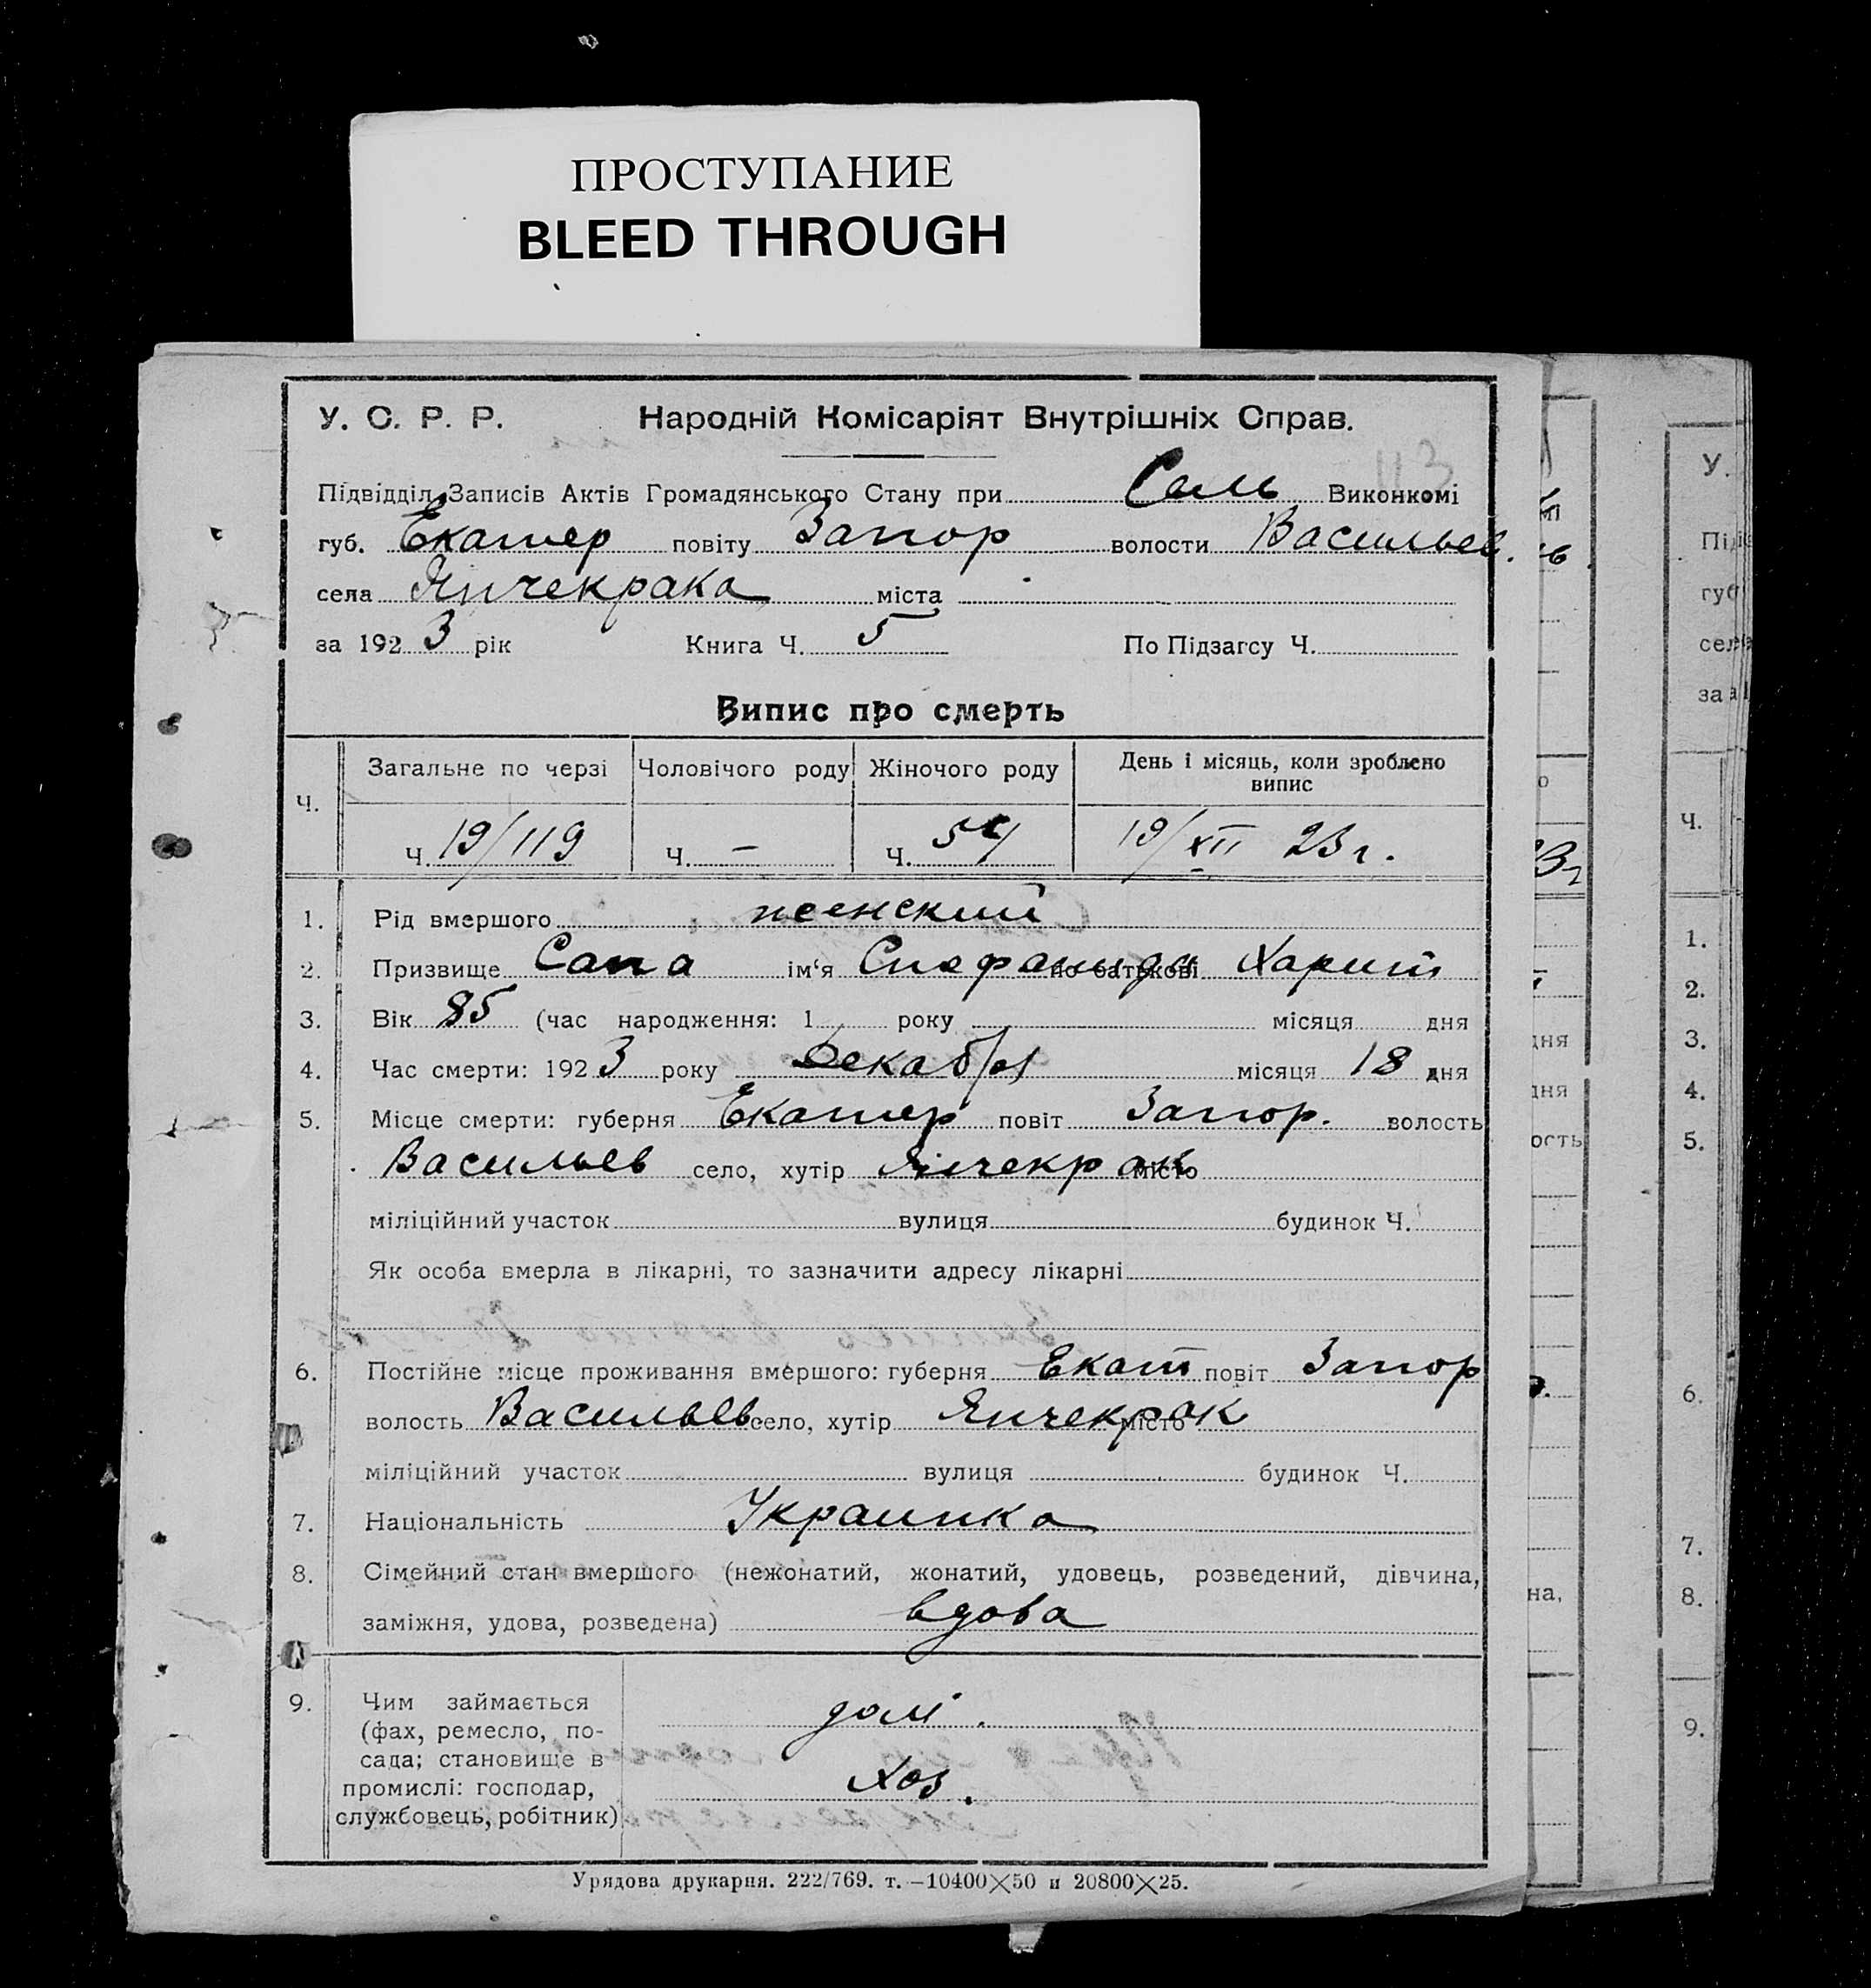 ПРОСТУПАНИЕ
BLEED THROUGH
113
У. С. Р. Р. Народній Комісаріят Внутрішніх Справ.
Підвідділ Записів Актів Громадянського Стану при Сель Виконкомі
губ. Екатер повіту Запор волости Васильев.
села Янчекрака міста
за 1923 рік Книга Ч. 5 По Підзагсу Ч.
Випис про смерть
Ч. Загальне по черзі Чоловічого роду Жіночого роду День і місяць, коли зроблено випис
Ч. 19/119 Ч. — Ч. 54 19/XII 23 г.
1. Рід вмершого женский
2. Призвище Сапа ім‘я Стефанида по батькові Харит
3. Вік 85 (час народження: 1 року місяця дня
4. Час смерти: 1923 року Декабря місяця 18 дня
5. Місце смерти: губерня Екатер повіт Запор. волость
Васильев село, хутір Янчекрак місто
міліційний участок вулиця будинок Ч.
Як особа вмерла в лікарні, то зазначити адресу лікарні
6. Постійне місце проживання вмершого: губерня Екат повіт Запор
волость Васильев село, хутір Янчекрак місто
міліційний участок вулиця будинок Ч.
7. Національність Украинка
8. Сімейний стан вмершого (нежонатий, жонатий, удовець, розведений, дівчина,
заміжня, удова, розведена) вдова
9. Чим займається
(фах, ремесло, по-
сада; становище в
промислі: господар,
службовець, робітник)
дом.
хоз.
Урядова друкарня. 222/769. т.—10400×50 и 20800×25.
У.
Ч.
1.
2.
3.
4.
5.
6.
7.
8.
9.